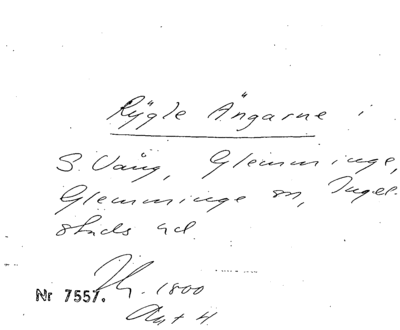 Rygle Ängarne i
S. Vång, Glemminge,
Glemminge sn, Ingel-
stads hd.
Nr 7557. 1800
Akt 4.